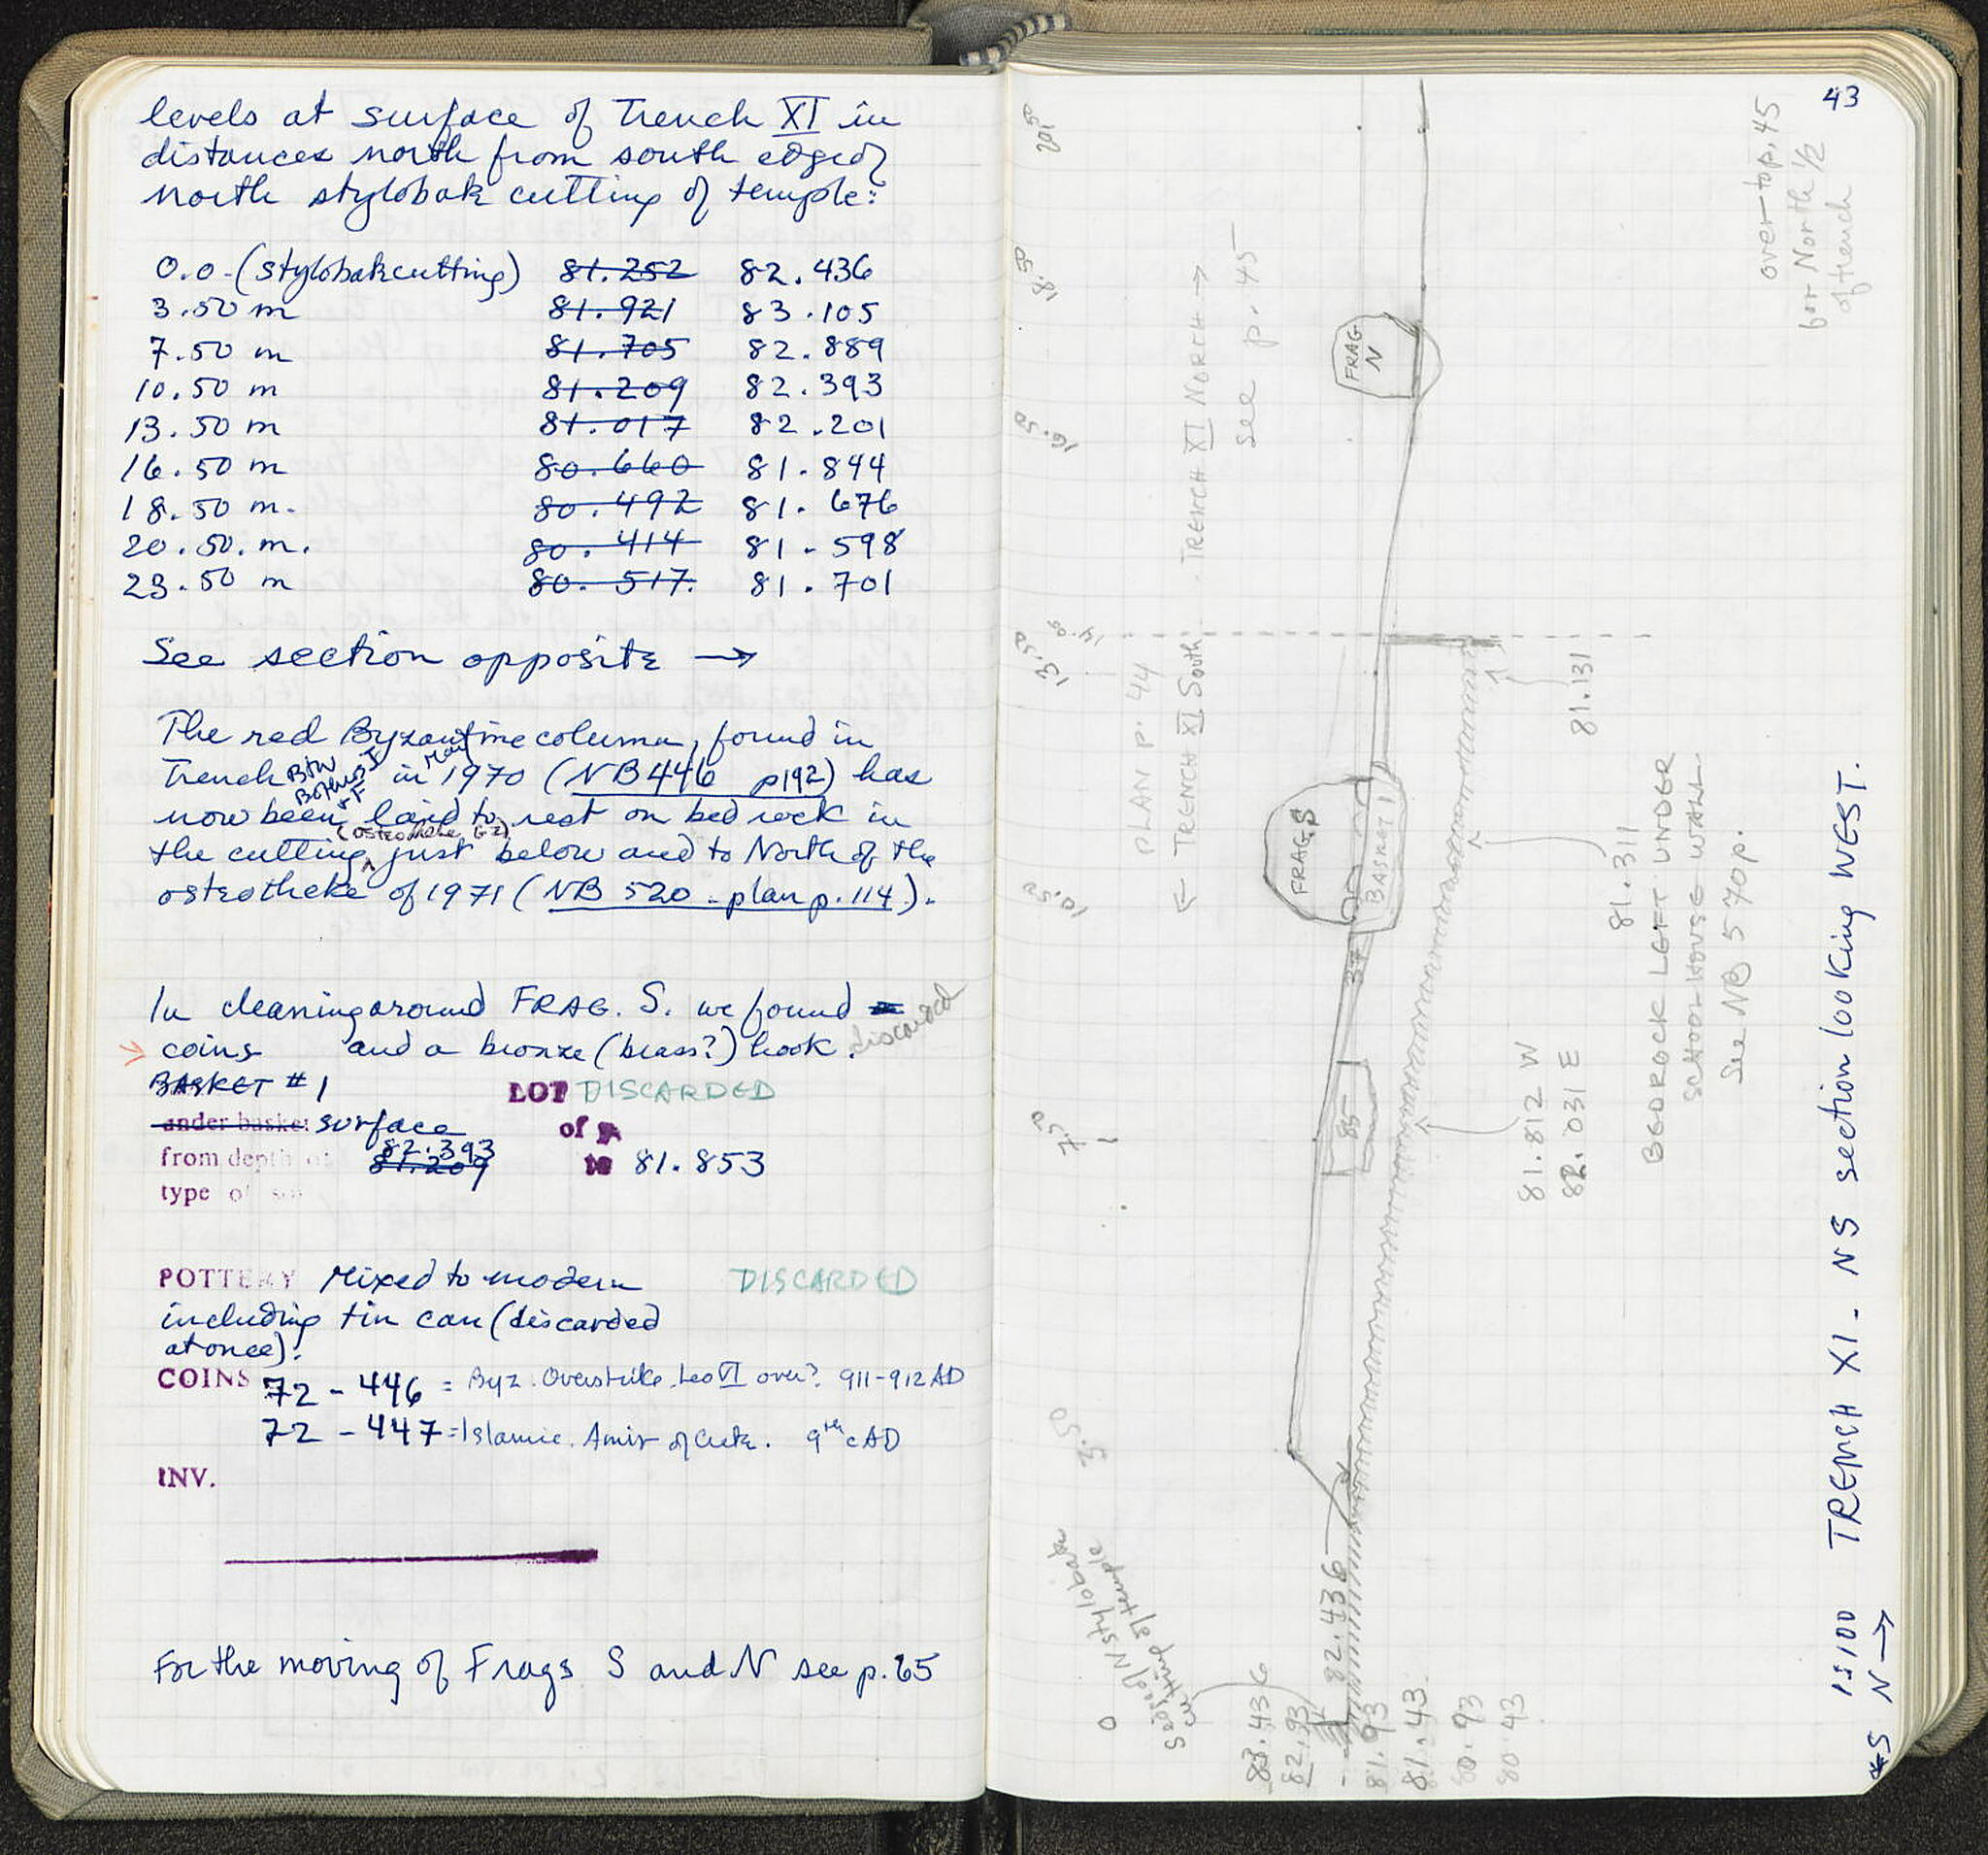 levels at surface of Trench XI in
distances north from south edge of
north stylobate cutting of temple:
0.0-(stylobate cutting) 81.252 82.436
3.50 m 81.921 83.105
7.50 m 81.705 82.889
10.50 m 81.209 82.393
13.50 m 81.017 82.201
16.50 m 80.660 81.844
18.50 m. 80.492 81.676
20.50.m. 80.414 81.598
23.50 m 80.517. 81.701
See section opposite →
The red Byzantine column, found in
Trench Btw Bothros I + F in May 1970 (NB446 p192) has
now been laid to rest on bedrock in
the cutting (osteotheke GZ) just below and to North of the
osteotheke of 1971 (NB 520 - plan p. 114).
In cleaning around FRAG. S. we found
coins and a bronze (brass?) hook. discarded
BASKET # 1 LOT DISCARDED
under basket surface of
from depth of 81.209 82.393 to 81.853
type of
POTTERY Mixed to modern DISCARDED
including tin can (discarded
at once).
COINS 72-446 = Byz. Overstrike Leo VI over? 911-912 AD
72-447 = Islamic. Amir of Crete. 9th c AD
INV.
For the moving of Frags S and N see p. 65
43
over → top. 45
for North 1/2
of trench
20.50
18.50
16.50
14.00
13.50
10.50
7.50
3.50
0
S edge of N stylobate
cutting of temple
TRENCH XI NORTH →
see p. 45
PLAN P. 44
← TRENCH XI South
FRAG
N
FRAG. S
BASKET 1
37
85
81.131
81.311
BEDROCK LEFT UNDER
SCHOOLHOUSE WALL.
See NB 5 70p.
81.812 W
82.031 E
82.436
83.436
82.93
81.93
81.43
80.93
80.43
TRENCH XI - NS section looking WEST.
1:100
S N →